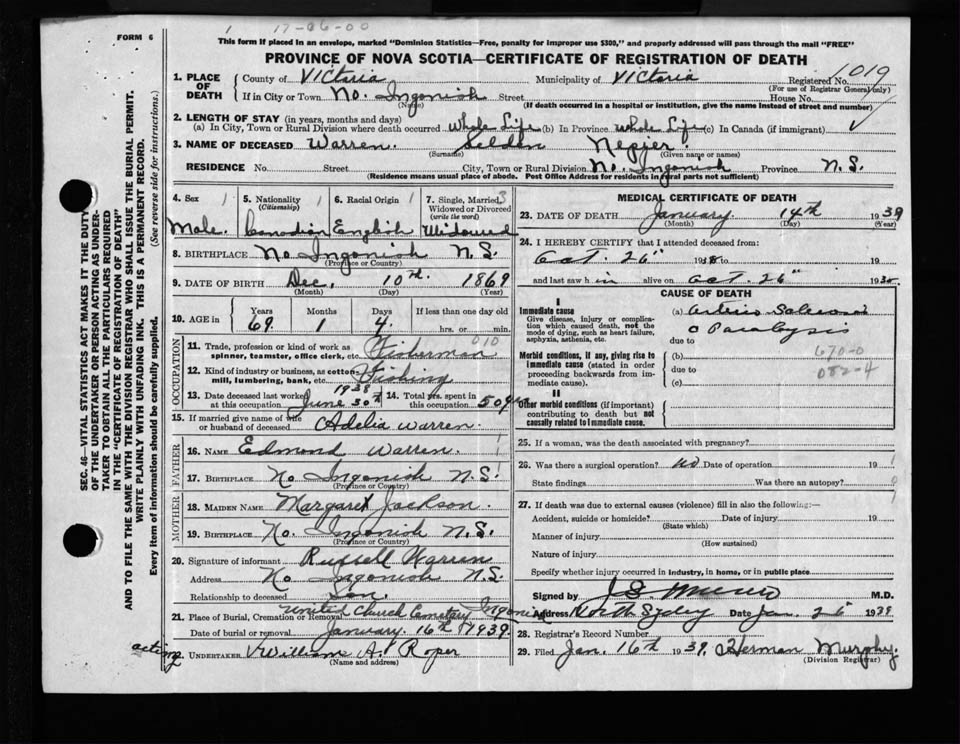 1 17-06-00
FORM 6
This form if placed in an envelope, marked "Dominion Statistics—Free, penalty for improper use $300," and properly addressed will pass through the mail "FREE"
PROVINCE OF NOVA SCOTIA—CERTIFICATE OF REGISTRATION OF DEATH
1. PLACE OF DEATH
County of Victoria Municipality of Victoria Registered No. 1019
(For use of Registrar General only)
If in City or Town No. Ingonish Street House No.
(Name) (If death occurred in a hospital or institution, give the name instead of street and number)
2. LENGTH OF STAY (in years, months and days)
(a) In City, Town or Rural Division where death occurred Whole Life (b) In Province Whole Life (c) In Canada (if immigrant)
3. NAME OF DECEASED Warren. Selden
(Surname) (Given name or names)
RESIDENCE No. Street City, Town or Rural Division No. Ingonish Province N.S.
(Residence means usual place of abode. Post Office Address for residents in rural parts not sufficient)
4. Sex 1
Male.
5. Nationality 1
(Citizenship)
Canadian
6. Racial Origin 1
English
7. Single, Married, Widowed or Divorced
(write the word) 3
Widowed
8. BIRTHPLACE No Ingonish N.S.
(Province or Country)
9. DATE OF BIRTH Dec. 10th. 1869
(Month) (Day) (Year)
10. AGE in
Years Months Days If less than one day
69. 1 4. hrs. or min.
OCCUPATION
11. Trade, profession or kind of work as spinner, teamster, office clerk, etc. Fisherman 010
12. Kind of industry or business, as cotton mill, lumbering, bank, etc. Fishing
13. Date deceased last worked at this occupation 1938 June 30th
14. Total yrs. spent in this occupation 50 yrs
15. If married give name of wife or husband of deceased Adelia Warren.
FATHER
16. NAME Edmond Warren.
17. BIRTHPLACE No Ingonish N.S.
(Province or Country)
MOTHER
18. MAIDEN NAME Margaret Jackson.
19. BIRTHPLACE No. Ingonish N.S.
(Province or Country)
20. Signature of informant Russell Warren
Address No Ingonish N.S.
Relationship to deceased Son.
21. Place of Burial, Cremation or Removal United Church Cemetary Ingonish
Date of burial or removal January 16th 1939.
acting
22. UNDERTAKER William A. Roper
(Name and address)
MEDICAL CERTIFICATE OF DEATH
23. DATE OF DEATH January 14th 1939
(Month) (Day) (Year)
24. I HEREBY CERTIFY that I attended deceased from:
Oct. 26" 1938 to 19
and last saw him alive on Oct. 26" 1938
CAUSE OF DEATH
I
Immediate cause
Give disease, injury or complication which caused death, not the mode of dying, such as heart failure, asphyxia, asthenia, etc.
(a) Arterio
Paralysis
due to
670-0
082-4
Morbid conditions, if any, giving rise to immediate cause (stated in order proceeding backwards from immediate cause).
(b)
due to
(c)
II
Other morbid conditions (if important) contributing to death but not causally related to immediate cause.
25. If a woman, was the death associated with pregnancy?
26. Was there a surgical operation? no Date of operation 19
State findings Was there an autopsy?
27. If death was due to external causes (violence) fill in also the following:—
Accident, suicide or homicide? Date of injury 19
(State which)
Manner of injury
(How sustained)
Nature of injury
Specify whether injury occurred in industry, in home, or in public place
Signed by M.D.
Address North Sydney Date Jan. 25 1939
28. Registrar's Record Number
29. Filed Jan. 16th 1939. Herman Murphy.
(Division Registrar)
SEC. 46—VITAL STATISTICS ACT MAKES IT THE DUTY
OF THE UNDERTAKER OR PERSON ACTING AS UNDER-
TAKER TO OBTAIN ALL THE PARTICULARS REQUIRED
IN THE "CERTIFICATE OF REGISTRATION OF DEATH"
AND TO FILE THE SAME WITH THE DIVISION REGISTRAR WHO SHALL ISSUE THE BURIAL PERMIT.
WRITE PLAINLY WITH UNFADING INK. THIS IS A PERMANENT RECORD.
Every item of information should be carefully supplied. (See reverse side for instructions.)